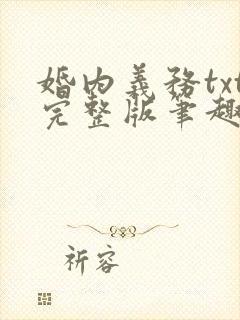 婚内義務txt
完整版筆趣
祈容